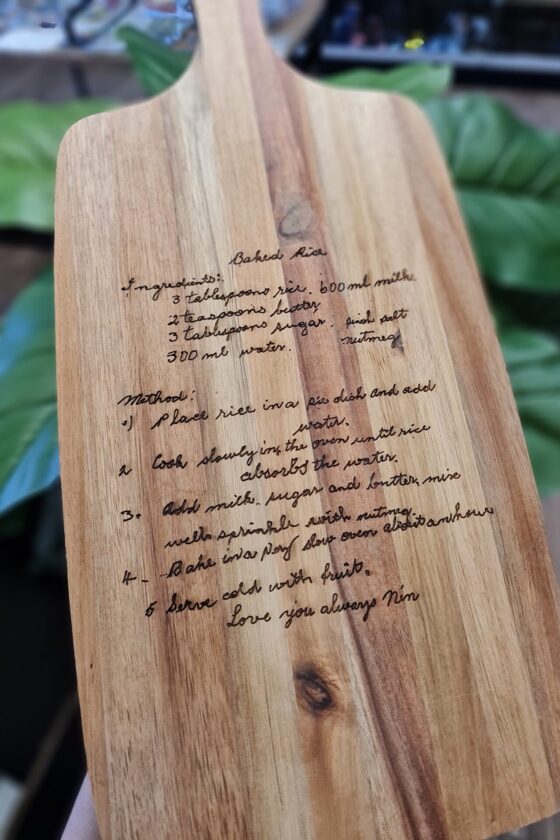 Baked Rice
Ingredients:
3 tablespoons rice. 600 ml milk.
2 teaspoons butter
3 tablespoons sugar. pinch salt
300 ml water. nutmeg
Method:
1) Place rice in a pie dish and add
water.
2 Cook slowly in the oven until rice
absorbs the water.
3. Add milk, sugar and butter, mix
well sprinkle with nutmeg.
4- Bake in a very slow oven about an hour
5 Serve cold with fruit.
Love you always Nin